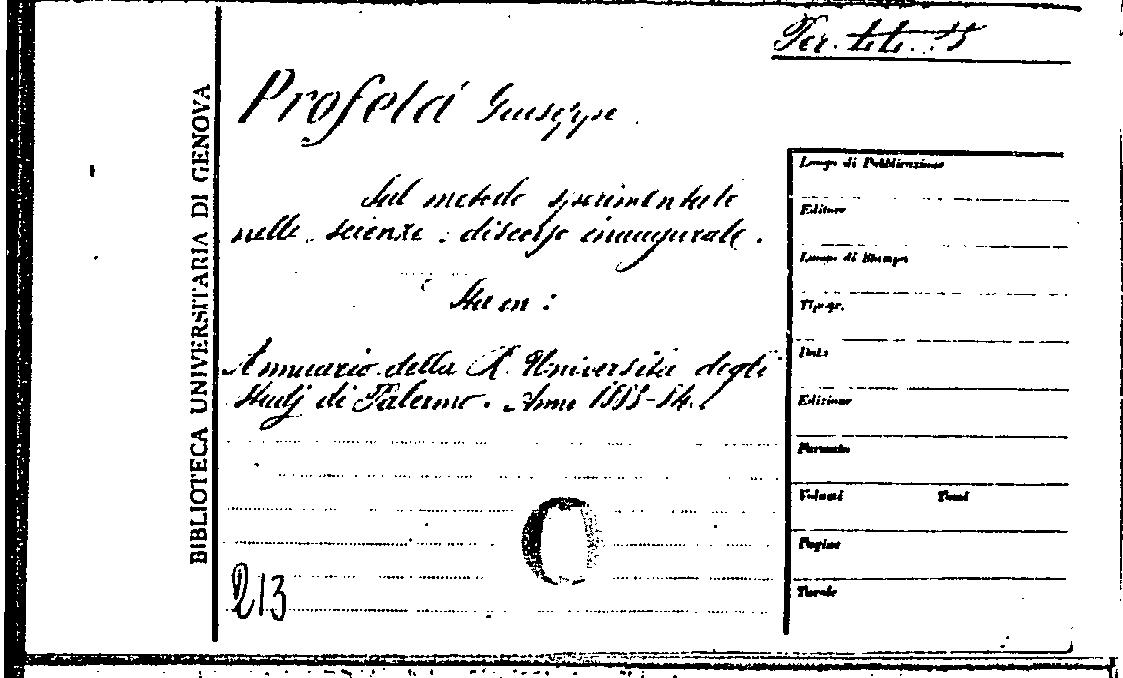 Per. It. It. 15
BIBLIOTECA UNIVERSITARIA DI GENOVA
Profetá Giuseppe
Sul metodo sperimentale
nelle scienze: discorso inaugurale.
Sta in:
Annuario della R. Università degli
Studj di Palermo. Anno 1883-84.
213
Luogo di Pubblicazione
Editore
Luogo di Stampa
Tipogr.
Data
Edizione
Formato
Volumi Tomi
Pagine
Tavole